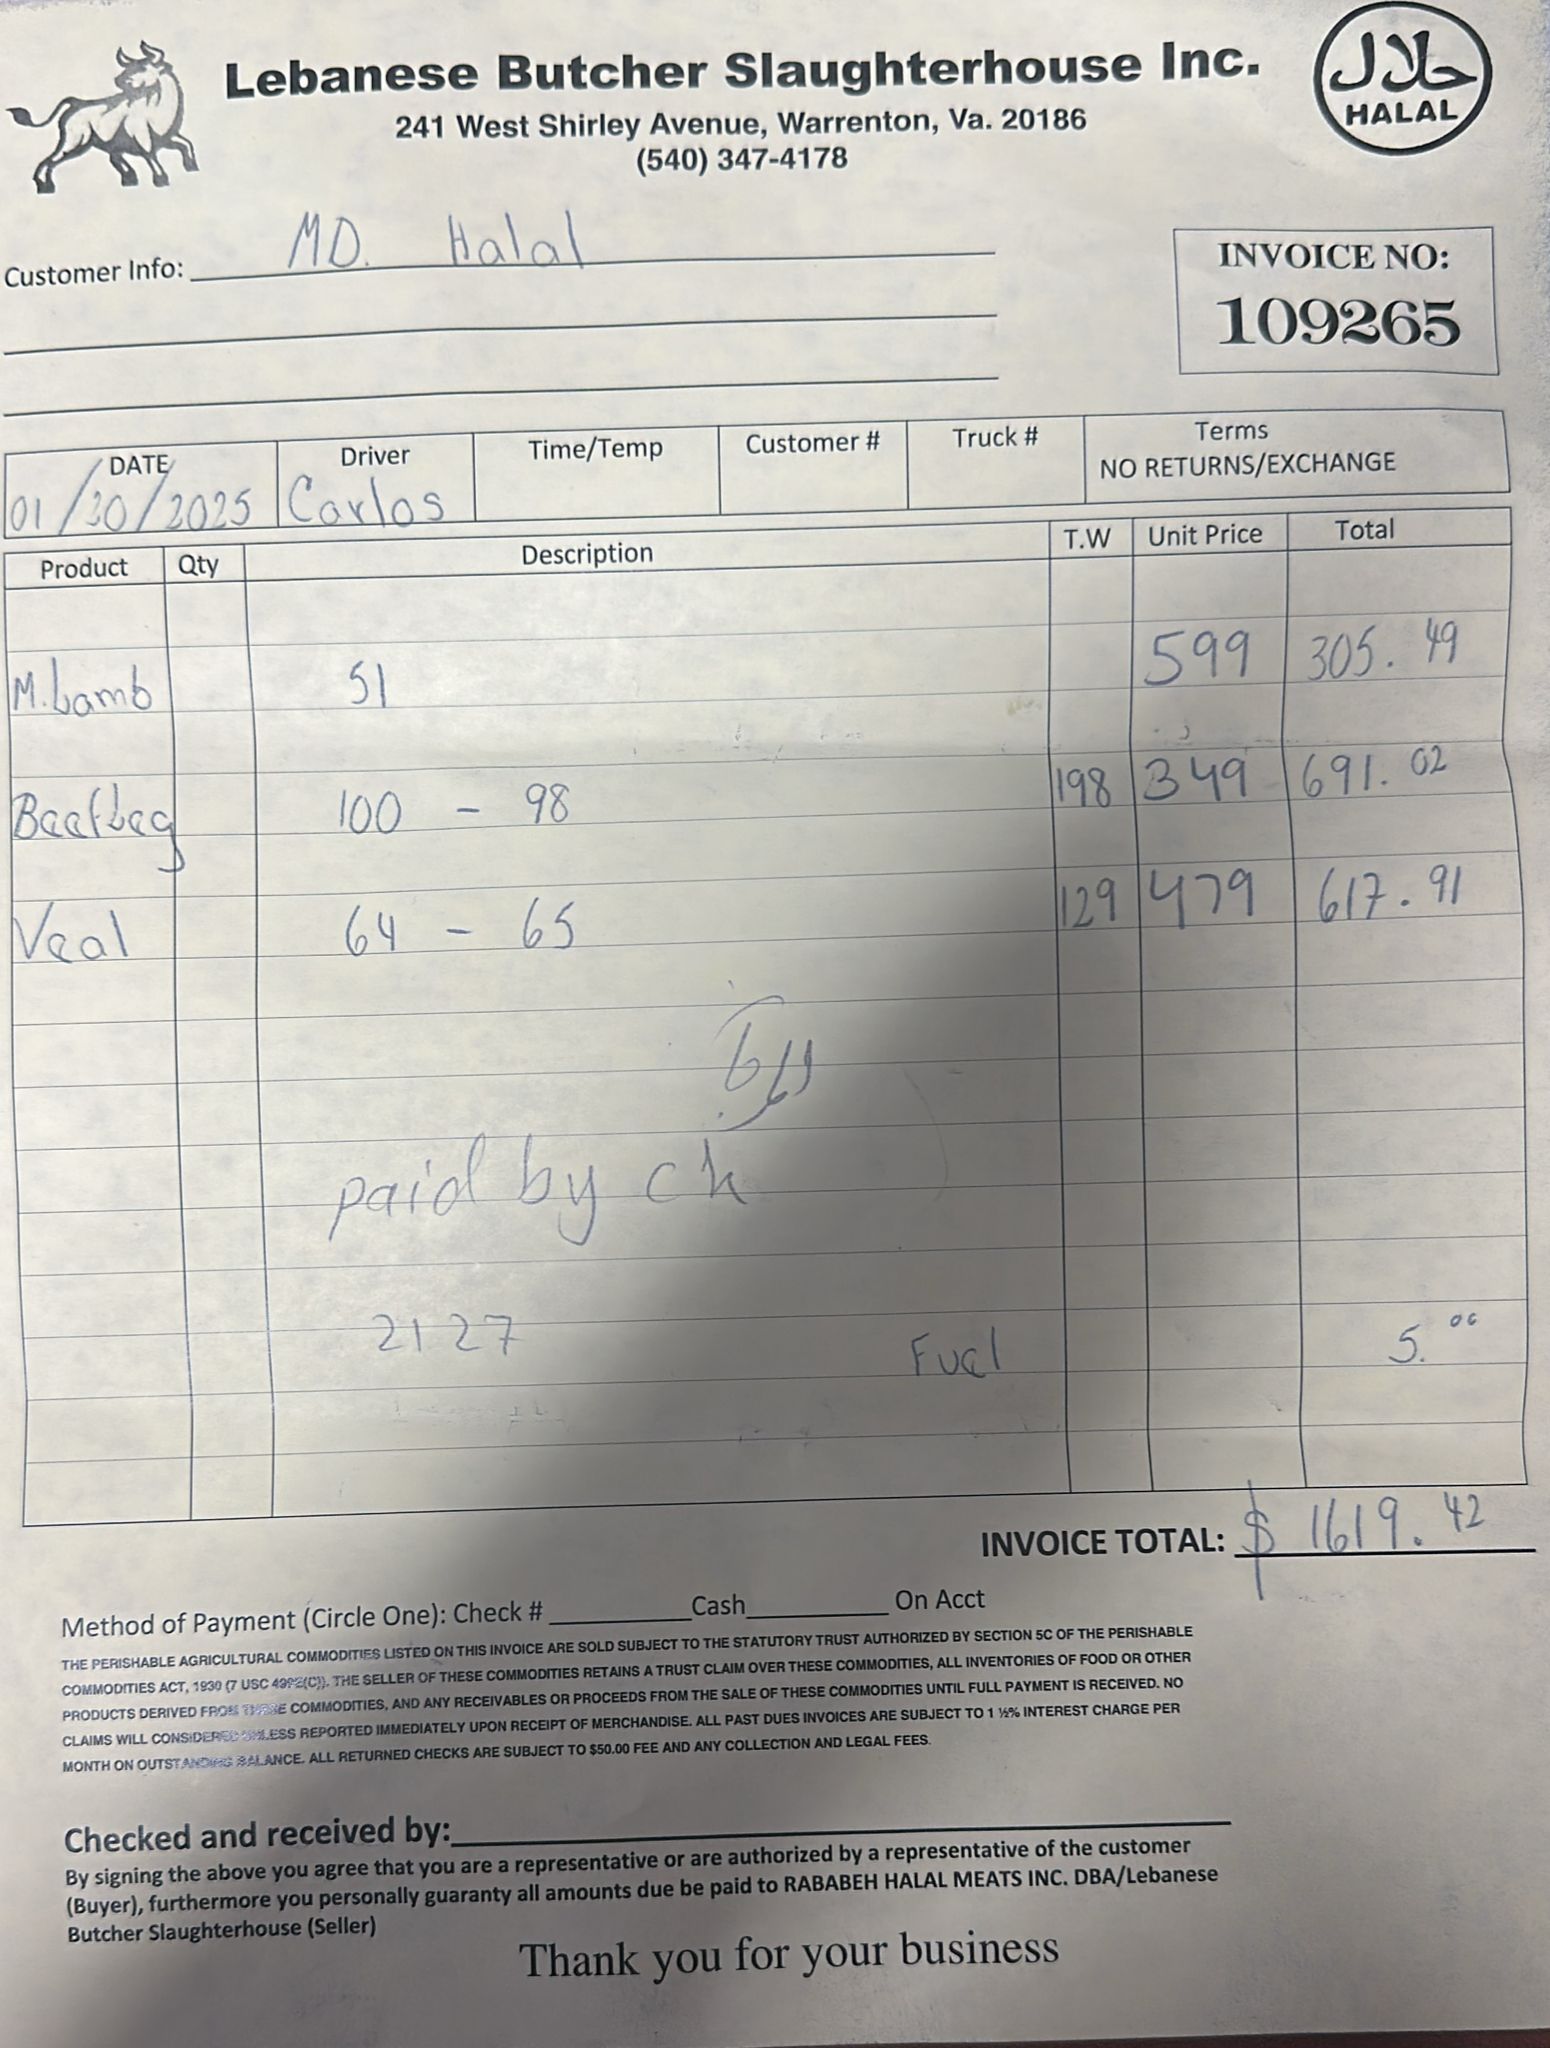 Lebanese Butcher Slaughterhouse Inc.
241 West Shirley Avenue, Warrenton, Va. 20186
(540) 347-4178
حلال
HALAL
Customer Info: MD. Halal
INVOICE NO:
109265
DATE Driver Time/Temp Customer # Truck # Terms
NO RETURNS/EXCHANGE
01/20/2025 Carlos
Product Qty Description T.W Unit Price Total
M.Lamb 51 599 305.49
BeefLeg 100 - 98 198 349 691.02
Veal 64 - 65 129 479 617.91
paid by ck
2127 Fuel 5.00
INVOICE TOTAL: $ 1619.42
Method of Payment (Circle One): Check # Cash On Acct
THE PERISHABLE AGRICULTURAL COMMODITIES LISTED ON THIS INVOICE ARE SOLD SUBJECT TO THE STATUTORY TRUST AUTHORIZED BY SECTION 5C OF THE PERISHABLE
COMMODITIES ACT, 1930 (7 USC 499E(C)). THE SELLER OF THESE COMMODITIES RETAINS A TRUST CLAIM OVER THESE COMMODITIES, ALL INVENTORIES OF FOOD OR OTHER
PRODUCTS DERIVED FROM THESE COMMODITIES, AND ANY RECEIVABLES OR PROCEEDS FROM THE SALE OF THESE COMMODITIES UNTIL FULL PAYMENT IS RECEIVED. NO
CLAIMS WILL CONSIDERED UNLESS REPORTED IMMEDIATELY UPON RECEIPT OF MERCHANDISE. ALL PAST DUES INVOICES ARE SUBJECT TO 1 ½% INTEREST CHARGE PER
MONTH ON OUTSTANDING BALANCE. ALL RETURNED CHECKS ARE SUBJECT TO $50.00 FEE AND ANY COLLECTION AND LEGAL FEES.
Checked and received by:
By signing the above you agree that you are a representative or are authorized by a representative of the customer
(Buyer), furthermore you personally guaranty all amounts due be paid to RABABEH HALAL MEATS INC. DBA/Lebanese
Butcher Slaughterhouse (Seller)
Thank you for your business